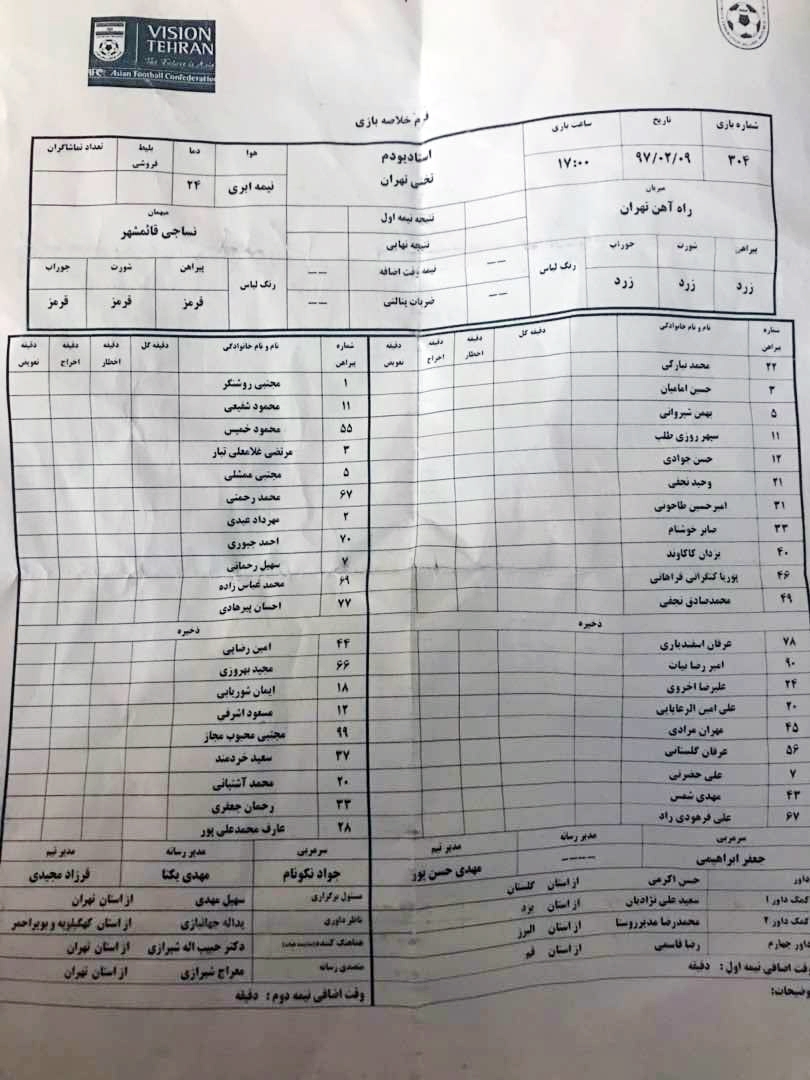 VISION
TEHRAN
The Future is Asia
AFC Asian Football Confederation
فرم خلاصه بازی
شماره بازی تاریخ ساعت بازی
۳۰۴ ۹۷/۰۲/۰۹ ۱۷:۰۰
استادیودم
تختی تهران
هوا دما بلیط فروشی تعداد تماشاگران
نیمه ابری ۲۴
میزبان
راه آهن تهران
میهمان
نساجی قائمشهر
نتیجه نیمه اول
نتیجه نهایی
-- نیمه وقت اضافه --
-- ضربات پنالتی --
پیراهن شورت جوراب رنگ لباس
زرد زرد زرد
رنگ لباس پیراهن شورت جوراب
قرمز قرمز قرمز
شماره پیراهن نام و نام خانوادگی دقیقه گل دقیقه اخطار دقیقه اخراج دقیقه تعویض
۲۲ محمد تبارکی
۳ حسین امامیان
۵ بهمن شیروانی
۱۱ سپهر روزی طلب
۱۲ حسن جوادی
۲۱ وحید نجفی
۳۱ امیرحسین طاحونی
۳۳ صابر خوشنام
۴۰ یزدان کاکاوند
۴۶ پوریا کنگرانی فراهانی
۴۹ محمدصادق نجفی
ذخیره
۷۸ عرفان اسفندیاری
۹۰ امیر رضا بیات
۲۴ علیرضا اخروی
۲۰ علی امین الرعایایی
۴۵ مهران مرادی
۵۶ عرفان گلستانی
۷ علی حضرتی
۴۳ مهدی شمس
۶۷ علی فرهودی راد
سرمربی مدیر رسانه مدیر تیم
جعفر ابراهیمی ---- مهدی حسن پور
داور حسن اکرمی از استان گلستان
کمک داور ۱ سعید علی نژادیان از استان یزد
کمک داور ۲ محمدرضا مدیرروستا از استان البرز
داور چهارم رضا قاسمی از استان قم
وقت اضافی نیمه اول : دقیقه
وضیحات:
شماره پیراهن نام و نام خانوادگی دقیقه گل دقیقه اخطار دقیقه اخراج دقیقه تعویض
۱ مجتبی روشنگر
۱۱ محمود شفیعی
۵۵ محمود خمیس
۳ مرتضی غلامعلی تبار
۵ مجتبی ممشلی
۶۷ محمد رحمتی
۲ مهرداد عبدی
۷۰ احمد جبوری
۷ سهیل رحمانی
۶۹ محمد عباس زاده
۷۷ احسان پیرهادی
ذخیره
۴۴ امین رضایی
۶۶ مجید بهروزی
۱۸ ایمان شوریابی
۱۲ مسعود اشرفی
۹۹ مجتبی محبوب مجاز
۳۷ سعید خردمند
۲۰ محمد آشتیانی
۳۳ رحمان جعفری
۲۸ عارف محمدعلی پور
سرمربی مدیر رسانه مدیر تیم
جواد نکونام مهدی یکتا فرزاد مجیدی
مسئول برگزاری سهیل مهدی از استان تهران
ناظر داوری یداله جهانبازی از استان کهگیلویه و بویراحمر
هماهنگ کننده دکتر حبیب اله شیرازی از استان تهران
متصدی رسانه معراج شیرازی از استان تهران
وقت اضافی نیمه دوم : دقیقه